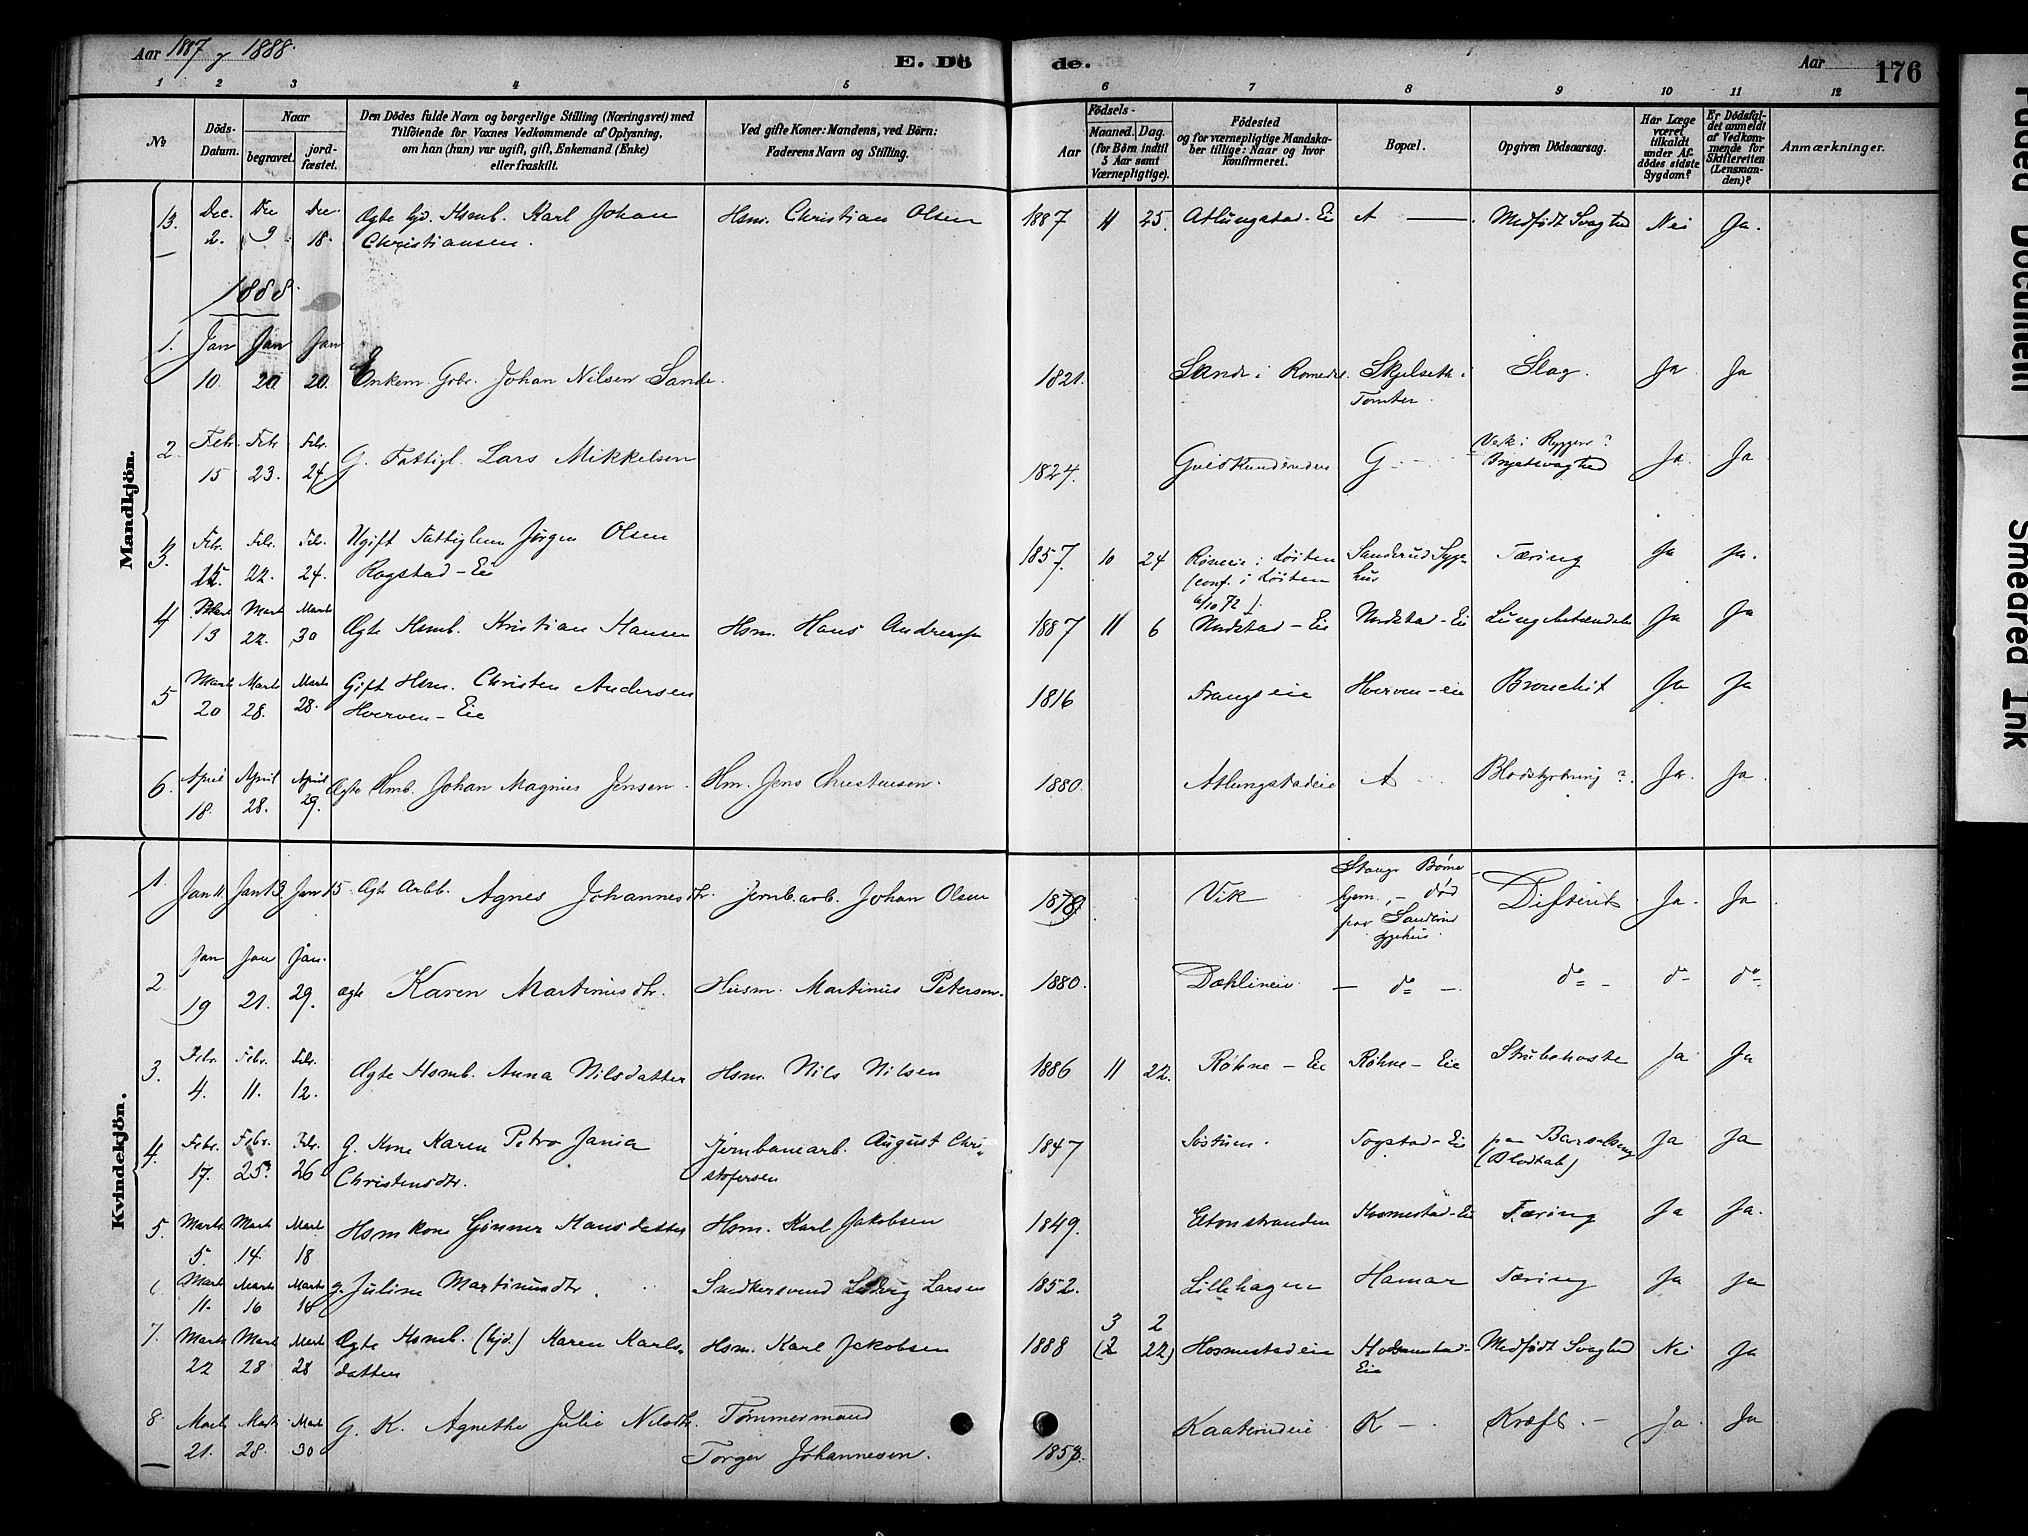 Aar 1887 & 1888.
E. Dö
de.
Aar
176
1 2 3 4 5 6 7 8 9 10 11 12
No
Döds-Datum.
Naar
begravet.
jord-fæstet.
Den Dödes fulde Navn og borgerlige Stilling (Næringsvei) med
Tilföiende for Voxnes Vedkommende af Oplysning,
om han (hun) var ugift, gift, Enkemand (Enke)
eller fraskilt.
Ved gifte Koner: Mandens, ved Börn:
Faderens Navn og Stilling.
Födsels-
Aar
Maaned. Dag.
(for Börn indtil
5 Aar samt
Værnepligtige).
Födested
og for værnepligtige Mandska-
ber tillige: Naar og hvor
konfirmeret.
Bopæl.
Opgiven Dödsaarsag.
Har Læge
været
tilkaldt
under Af-
dödes sidste
Sygdom?
Er Dödsfal-
det anmeldt
af Vedkom-
mende for
Skifteretten
(Lensman-
den)?
Anmærkninger.
Mandkjön.
13. Dec. 2. Dec 9. Dec. 18. Ægte hjd. Hsmb. Karl Johan Hsm. Christian Olsen 1887 11 25. Atlungstad-Eie A — Medfödt Svaghed Nei Ja.
Christiansen.
1888.
1. Jan 10. Jan 20 Jan 20. Enkem. Gbr. Johan Nilsen Sande. 1821. Sande i Romedal. Skjelseth i Slag. Ja Ja
Tomter.
2. Febr. 15 Febr. 23. Febr. 24 G. Fattigl. Lars Mikkelsen 1824. G — Værk i Ryggen? Ja. Ja
Brystsvaghed
3. Febr. 15. Febr. 22. Febr. 24. Ugift Fattiglem Jörgen Olsen 1857. 10 24 i Löiten Sanderud Syge- Tæring Ja Ja.
Rogstad-Eie (conf. i Löiten hus
6/10 72).
4 Marts 13 Marts 22. Marts 30 Ægte Hsmb. Kristian Hansen Hsm. Hans Andreasen 1887 11 6 Nordstad-Eie Nordstad-Eie Lungebetændelse Ja Ja
5 Marts 20 Marts 28. Marts 28. Gift Hsm. Christen Andersen 1816 Frangseie Hverven-eie Bronchit Ja Ja
Hverven-Eie
6. April 18. April 28. April 29. Ægte Hmb. Johan Magnus Jensen. Hm. Jens Christensen. 1880. Atlungstadeie A — Blodstyrtning? Ja. Ja.
Kvindekjön.
1. Jan 11. Jan 13 Jan 15. Ægte Arbb. Agnes Johannesdtr. Jernb.arb. Johan Olsen 1879. Vik Stange Börne- Difterit Ja. Ja
hjem, — död
paa Sanderud
sygehus.
2. Jan 19 Jan 21. Jan. 29. ægte Karen Martinusdtr. Husm. Martinus Petersen. 1880. Dæhlineie. — do — do — do do
3. Febr. 4. Febr. 11. Febr. 12. Ægte Hsmb. Anna Nilsdatter Hsm. Nils Nilsen 1886 11 22. Röhne-Eie Röhne-Eie Strubehoste Ja Ja
4. Febr. 17. Febr. 25. Febr. 26 G. Kone Karen Petra Jania Jernbanearb. August Chri- 1847 Sostuen. Fogstad-Eie paa Barselseng Ja Ja
Christensdtr. stofersen (Blodtab)
5. Marts 5. Marts 14. Marts 18 Hsmkone Gunner Hansdatter Hsm. Karl Jakobsen 1849. Etonstranden Hosmestad-Eie Tæring Ja Ja.
6 Marts 11. Marts 16 Marts 16 g. Juline Martinusdtr. Snedkersvend Ludvig Larsen 1852. Lillehagen Hamar Tæring Ja Ja
7. Marts 22 Marts 28 Marts 28 Ægte Hsmb. (hjd.) Karen Karls- Hsm. Karl Jakobsen 1888 3 2 (2 22) Hosmestadeie Hosmestad- Medfödt Svaghed Nei Ja
datter Eie
8. Marts 21. Marts 28. Marts 30 G. K. Agnethe Julie Nilsdtr. Tömmermand 1853. K — Kræft. — Ja. Ja
Torger Johannesen.
Faded Document
Smeared Ink